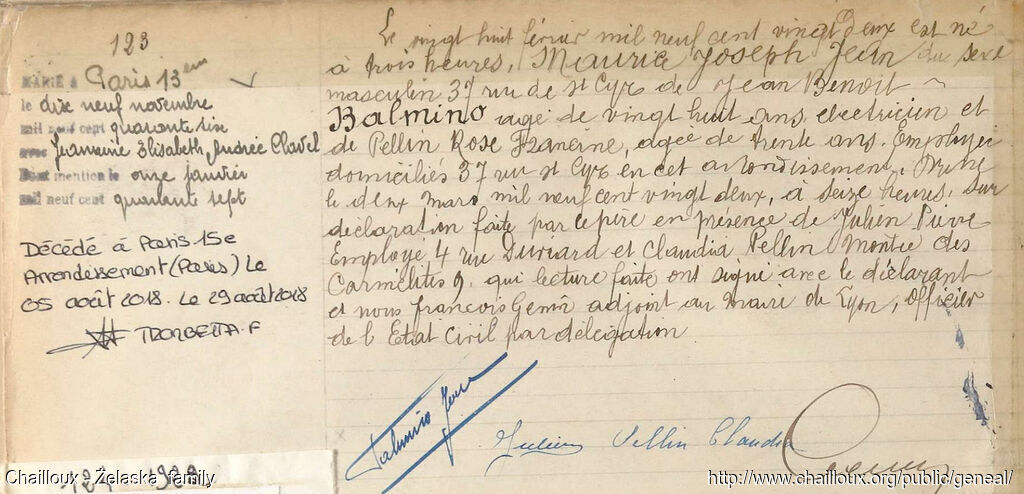 123
MARIÉ à Paris 13em
le dix neuf novembre
mil neuf cent quarante six
avec Germaine Elisabeth Andrée Clavel
Dont mention le onze janvier
mil neuf cent quarante sept
Décédé à Paris 15e
Arrondissement (Paris) Le
05 août 2018. Le 29 août 2018
TROMBETTA.F
Le vingt huit février mil neuf cent vingt deux est né
à trois heures, Maurice Joseph Jean du sexe
masculin 37 rue de St Cyr de Jean Benoit
Balmino agé de vingt huit ans electricien et
de Pellin Rose Francine, agée de trente ans. Employée
domiciliés 37 rue St Cyr en cet arrondissement. Dressé
le deux mars mil neuf cent vingt deux, à seize heures. Sur
déclaration faite par le père en présence de Julien Pierre
Employé 4 rue et Claudia Pellin Montée des
Carmélites 9. qui lecture faite ont signé avec le déclarant
et nous François adjoint au maire de Lyon, Officier
de l Etat Civil par délégation
Balmino Jean
Julien Pellin Claudia
127 1922
Chailloux - Żelaska family
http://www.chailloux.org/public/geneal/